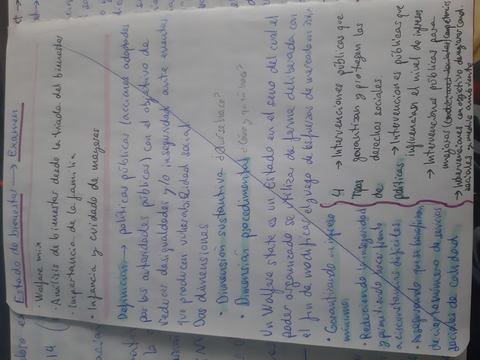 Estado de bienestar → Examen
· Welfare mix
· Análisis de bienestar desde la tríada del bienestar
· Importancia de la familia
· Infancia y cuidado de mayores
Definición → políticas públicas (acciones adoptadas
por las autoridades públicas) con el objetivo de
reducir desigualdades y/o inseguridad ante eventos
que producen vulnerabilidad social.
Dos dimensiones
· Dimensión sustantiva ¿Qué se hace?
· Dimensión procedimental
Un Welfare state es un Estado en el seno del cual el
poder organizado se utiliza de forma deliberada con
el fin de modificar el juego de las fuerzas de mercado
· Garantizando un ingreso
mínimo
· Reduciendo la inseguridad
y permitiendo hacer frente
a circunstancias difíciles
· Asegurando que se beneficien
de servicios
sociales de calidad
4
Tipos
de
políticas
→ Intervenciones públicas que
garantizan y protegen los
derechos sociales
→ Intervenciones públicas que
influencian el nivel de ingresos
→ Intervenciones públicas para
mejorar
→ Intervenciones con objetivo de mejorar cond.
sociales y medio ambiente